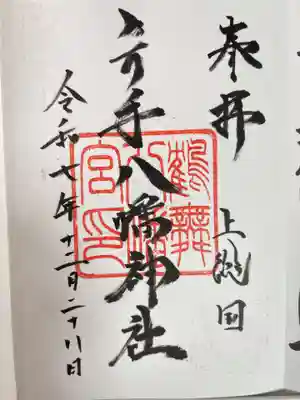 奉拝
上総国
手八幡神社
令和七年十二月二十八日
鶴舞
八幡
宮印